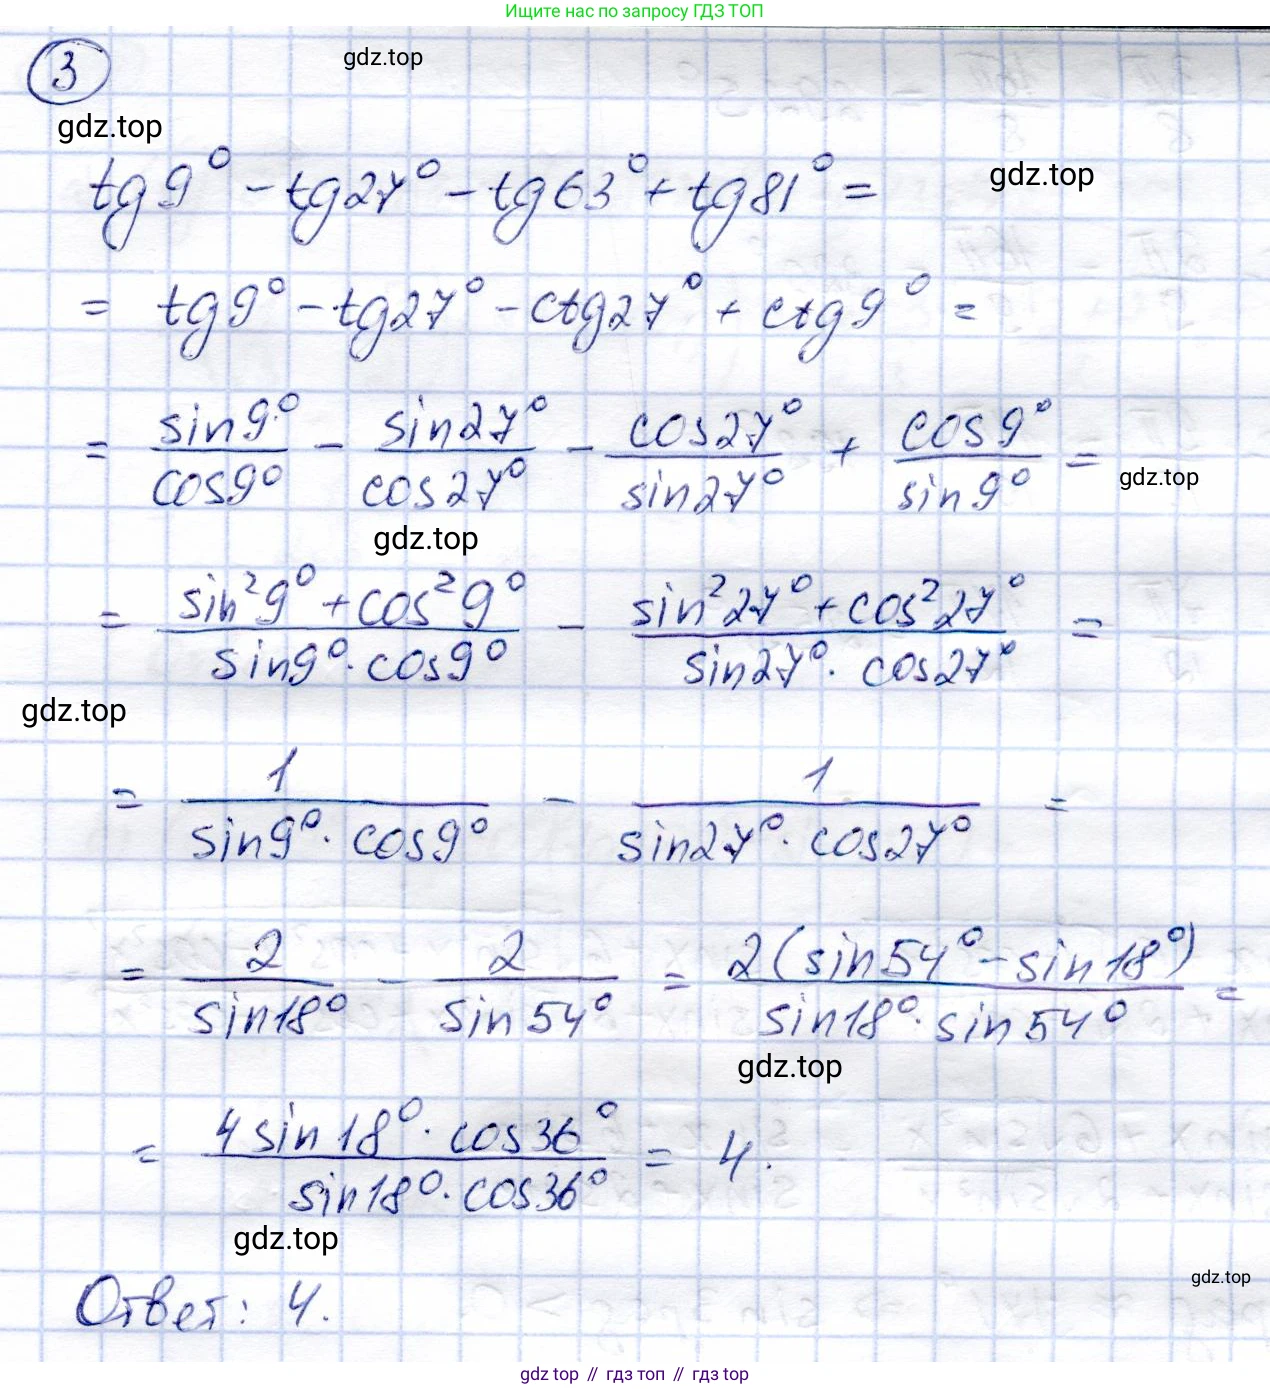 Ищите нас по запросу ГДЗ ТОП
3
gdz.top
gdz.top
tg9° - tg27° - tg63° + tg81° =
gdz.top
= tg9° - tg27° - ctg27° + ctg9° =
= sin9°/cos9° - sin27°/cos27° - cos27°/sin27° + cos9°/sin9° =
gdz.top
gdz.top
= (sin²9° + cos²9°)/(sin9° · cos9°) - (sin²27° + cos²27°)/(sin27° · cos27°) =
gdz.top
= 1/(sin9° · cos9°) - 1/(sin27° · cos27°) =
= 2/sin18° - 2/sin54° = 2(sin54° - sin18°)/(sin18° · sin54°) =
gdz.top
= (4 sin18° · cos36°)/(sin18° · cos36°) = 4.
gdz.top
gdz.top
Ответ: 4.
gdz top // гдз топ // гдз top